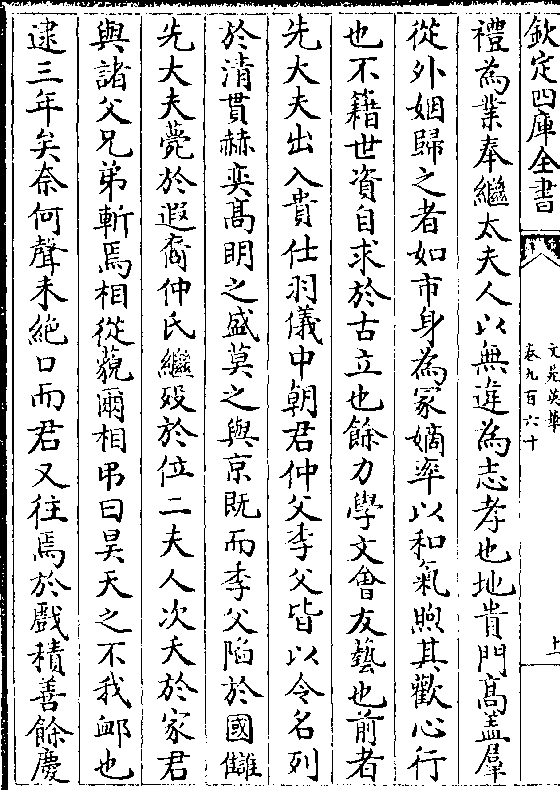 欽定四庫全書
文苑英華
卷九百六十
上
禮為業奉繼太夫人以無違為志孝也地貴門髙盖羣
從外姻歸之者如市身為冢嫡率以和氣煦其歡心行
也不籍世資自求於古立也餘力學文會友藝也前者
先大夫出入貴仕羽儀中朝君仲父季父皆以令名列
於清貫赫奕髙明之盛莫之與京既而季父陷於國讎
先大夫薨於遐裔仲氏繼歿於位二夫人次夭於家君
與諸父兄弟斬焉相從藐爾相弔曰昊天之不我䘏也
逮三年矣奈何聲未絶口而君又往焉於戲積善餘慶